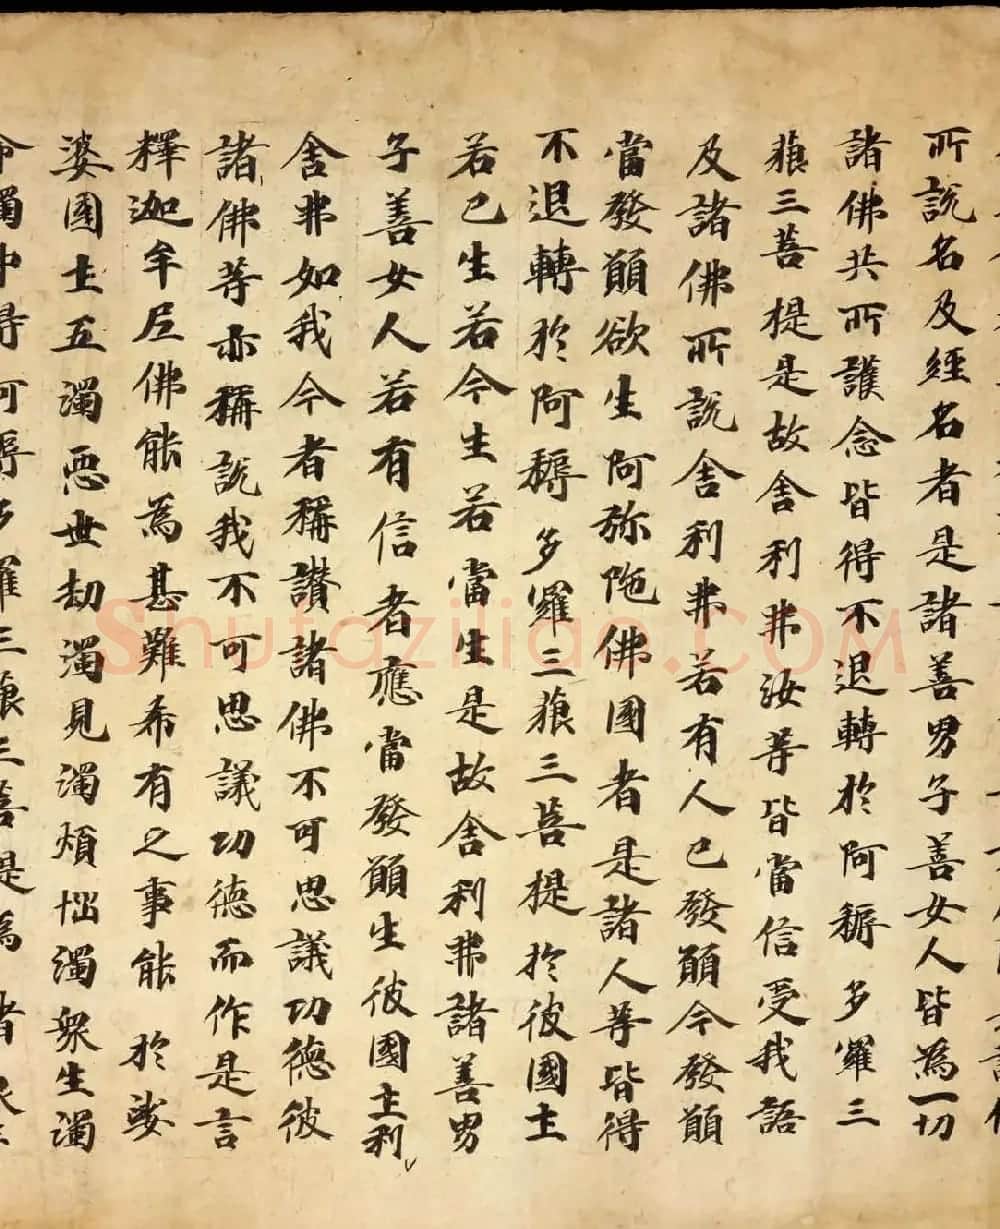 所說名及經名者是諸善男子善女人皆為一切
諸佛共所護念皆得不退轉於阿耨多羅三
藐三菩提是故舍利弗汝等皆當信受我語
及諸佛所說舍利弗若有人已發願今發願
當發願欲生阿弥陁佛國者是諸人等皆得
不退轉於阿耨多羅三藐三菩提於彼國土
若已生若今生若當生是故舍利弗諸善男
子善女人若有信者應當發願生彼國土利
舍弗如我今者稱讚諸佛不可思議功德彼
諸佛等亦稱說我不可思議功德而作是言
釋迦牟尼佛能為甚難希有之事能於娑
婆國土五濁惡世劫濁見濁煩惱濁眾生濁
命濁中得阿耨多羅三藐三菩提為諸眾生
Shufaziliao.com